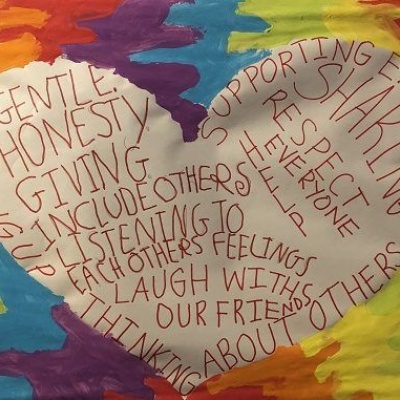 GENTLE.
HONESTY.
GIVING.
INCLUDE OTHERS
LISTENING TO
EACH OTHERS FEELINGS
LAUGH WITHS
OUR FRIENDS
THINKING ABOUT OTHERS
G UP
SUPPORTING E
SHAKING
RESPECT
EVERYONE
HELP